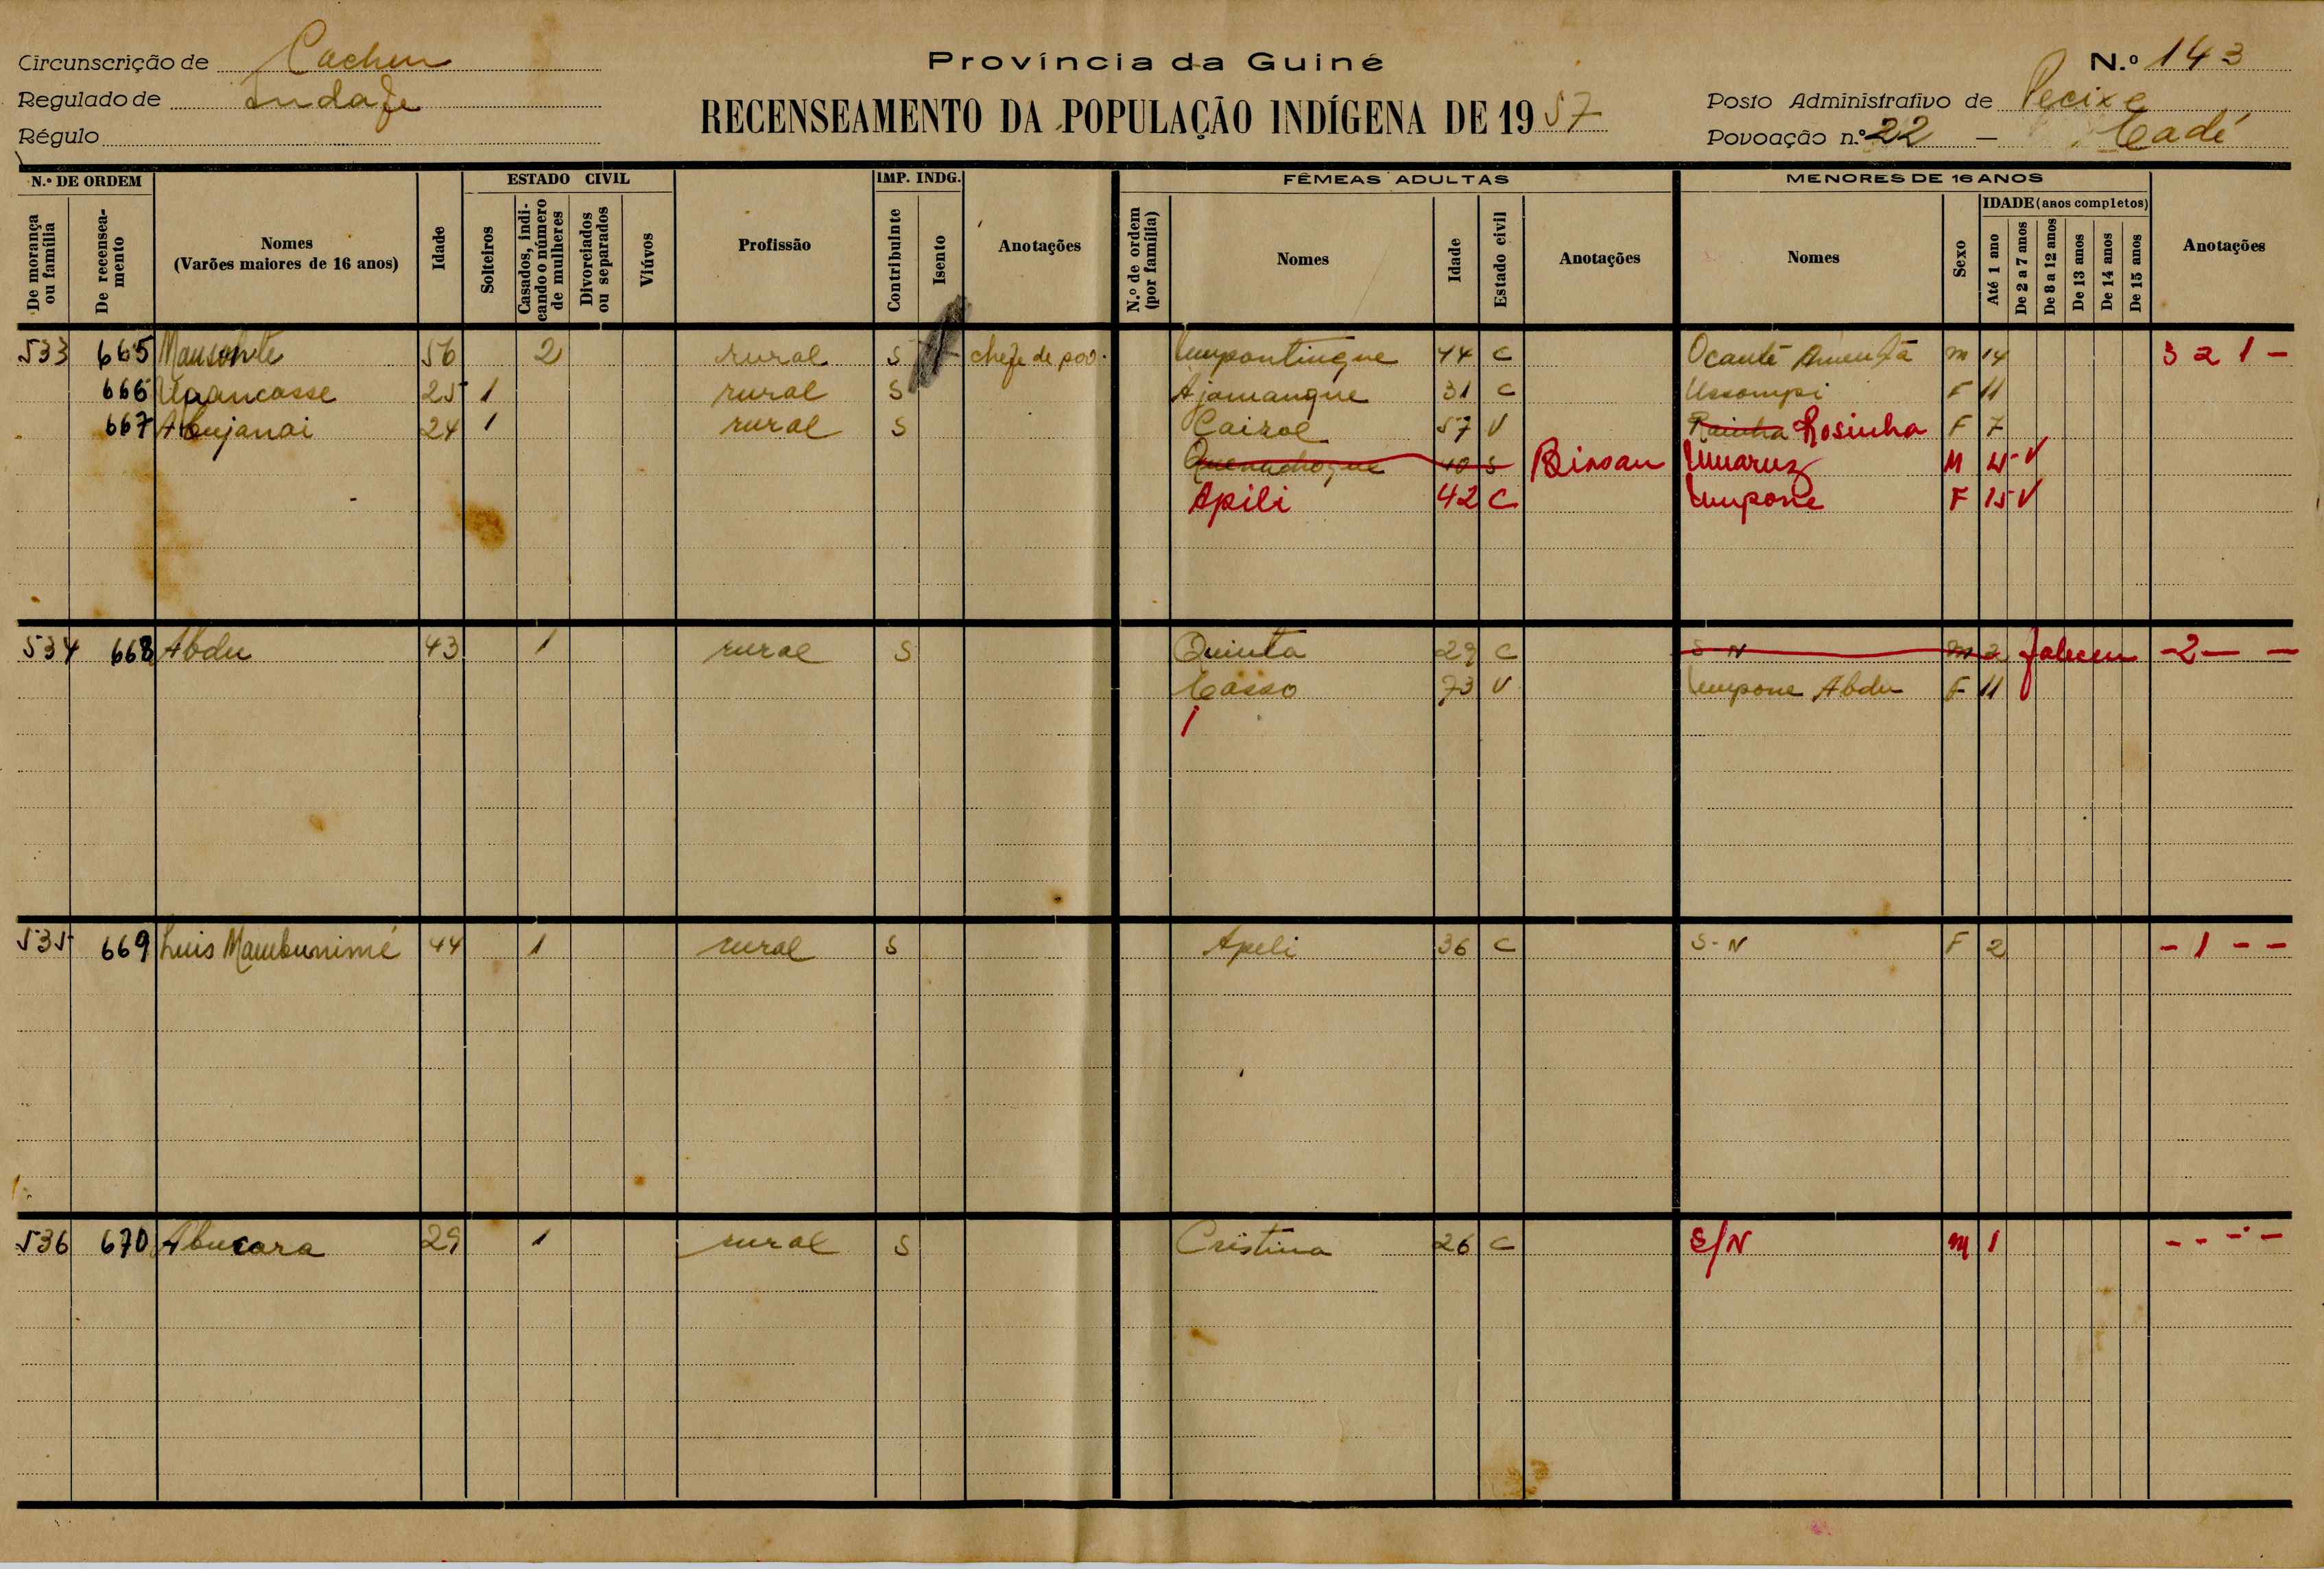 Circunscrição de Cacheu
Regulado de Indafe
Régulo
Província da Guiné
RECENSEAMENTO DA POPULAÇÃO INDÍGENA DE 1957
N.º 143
Posto Administrativo de Pecixe
Povoação n.º 22 — Cadé
N.º DE ORDEM
De morança ou família
De recenseamento
Nomes
(Varões maiores de 16 anos)
Idade
ESTADO CIVIL
Solteiros
Casados, indicando o número de mulheres
Divorciados ou separados
Viúvos
Profissão
IMP. INDG.
Contribuinte
Isento
Anotações
FÊMEAS ADULTAS
N.º de ordem (por família)
Nomes
Idade
Estado civil
Anotações
MENORES DE 16 ANOS
Nomes
Sexo
IDADE (anos completos)
Até 1 ano
De 2 a 7 anos
De 8 a 12 anos
De 13 anos
De 14 anos
De 15 anos
Anotações
533 665 56 2 rural S chefe de pov. Umpontingue 44 C Ocantê m 14 3 2 1 -
666 25 1 rural S Ajamanque 31 C Ussompi F 11
667 24 1 rural S Cairol 57 V Rainha Rosinha F 7
40 S Binsan Umaruz M V
Apili 42 C Umpone F 15 V
534 668 Abdu 43 1 rural S Quinta 29 C S-N m 2 faleceu -2- -
Casso 73 V Umpone Abdu F 11
1
535 669 Luis Mambunimé 44 1 rural S Apeli 36 C S-N F 2 - 1 - -
536 670 Abucara 29 1 rural S Cristina 26 C S/N M 1 - - - -